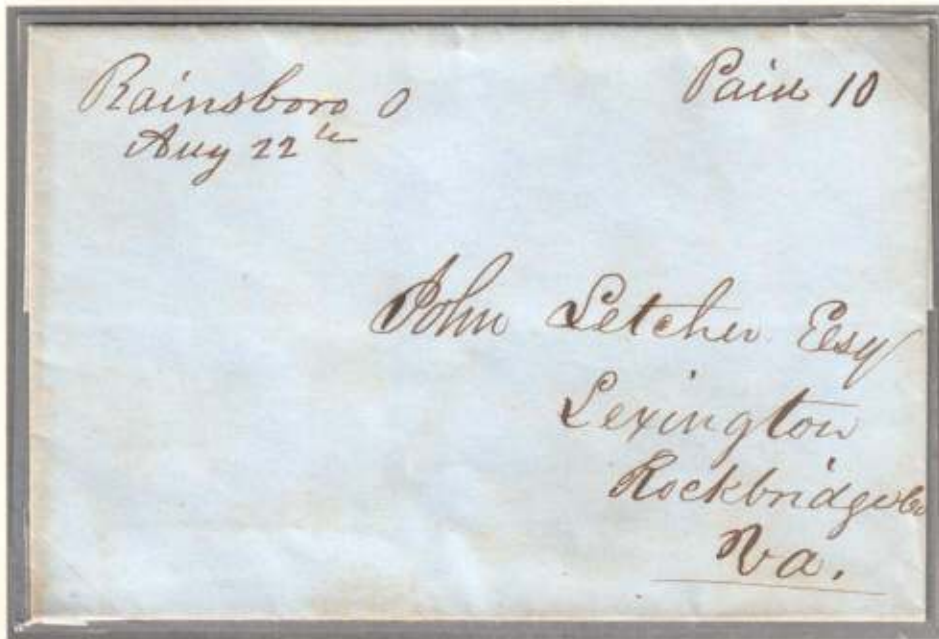 Rainsboro O
Aug 22th
Paid 10
John Letcher Esq
Lexington
Rockbridge Co
Va.